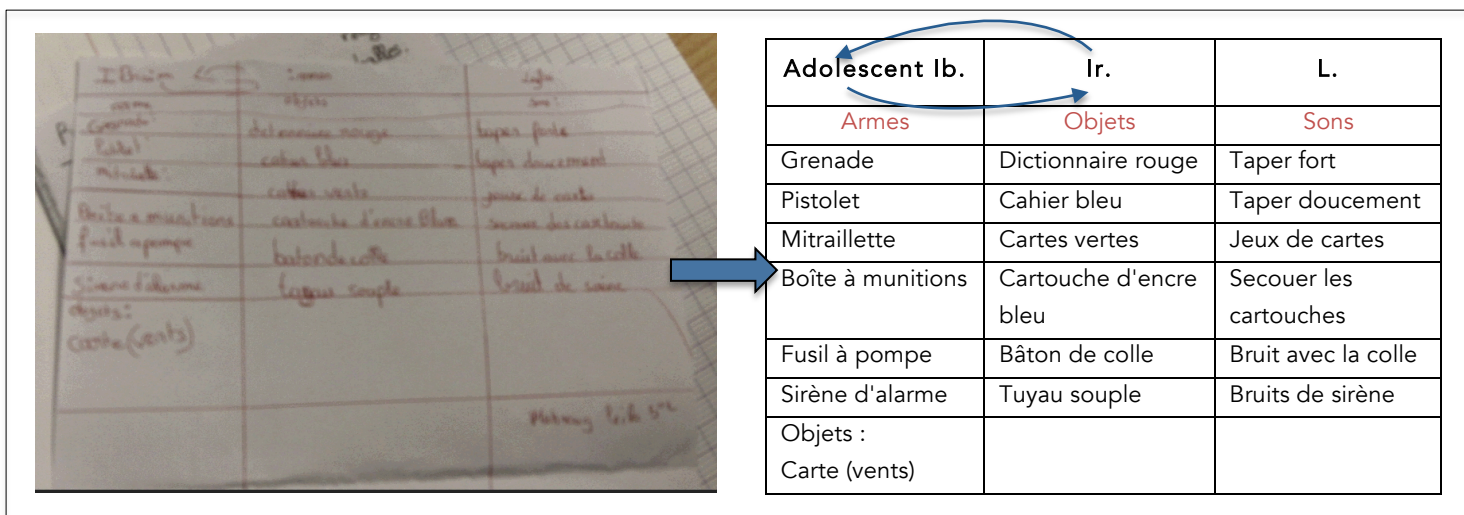 IBraim
objets
grenade
dictionnaire rouge
taper forte
cahier bleu
taper doucement
jeux de carte
Boîte a munitions
cartouche d'encre Blue
fusil a pompe
baton de colle
bruit avec la colle
Sirène d'alarme
tuyau souple
bruit de
objets:
carte (vents)
Adolescent Ib.
Ir.
L.
Armes
Objets
Sons
Grenade
Dictionnaire rouge
Taper fort
Pistolet
Cahier bleu
Taper doucement
Mitraillette
Cartes vertes
Jeux de cartes
Boîte à munitions
Cartouche d'encre
bleu
Secouer les
cartouches
Fusil à pompe
Bâton de colle
Bruit avec la colle
Sirène d'alarme
Tuyau souple
Bruits de sirène
Objets :
Carte (vents)